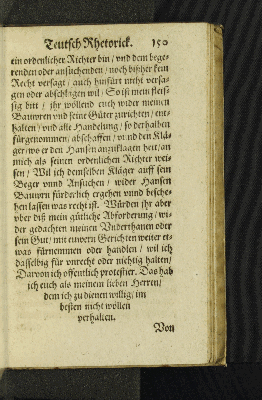 Teutsch Rhetorick. 150
ein ordenlicher Richter bin / vnd dem bege-
renden oder ansuchenden / noch bißher kein
Recht versagt / auch hinfürt nicht versa-
gen oder abschlagen wil / So ist mein fleis-
sig bitt / ihr wöllend euch wider meinen
Bauwren vnd seine Güter zurichten / ent-
halten / vnd alle Handelung / so derhalben
fürgenommen / abschaffen / vnd den Klä-
ger / wo er den Hansen anzuklagen hett / an
mich als seinen ordenlichen Richter wei-
sen / Wil ich demselben Kläger auff sein
Beger vnnd Ansuchen / wider Hansen
Bauwrn fürderlich ergehen vnnd besche-
hen lassen was recht ist. Würden ihr aber
vber diß mein gütliche Abforderung / wi-
der gedachten meinen Vnderthanen oder
sein Gut / mit euwern Gerichten weiter et-
was fürnemmen oder handlen / wil ich
dasselbig für vnrecht oder nichtig halten /
Darvon ich öffentlich protestier. Das hab
ich euch als meinem lieben Herren /
dem ich zu dienen willig / im
besten nicht wöllen
verhalten.
Von